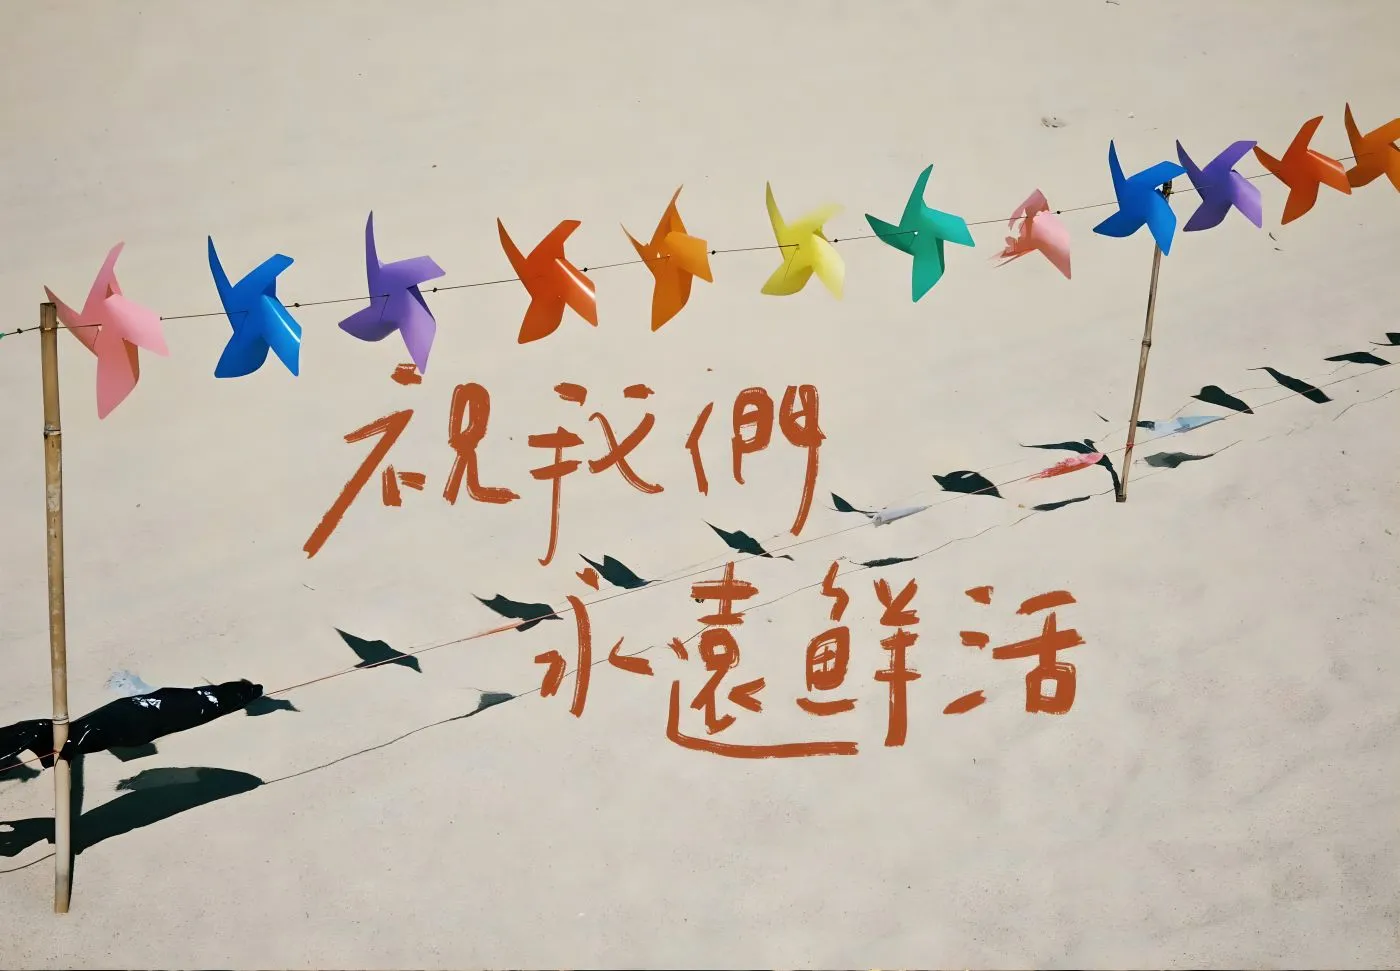 祝我們
永遠鮮活